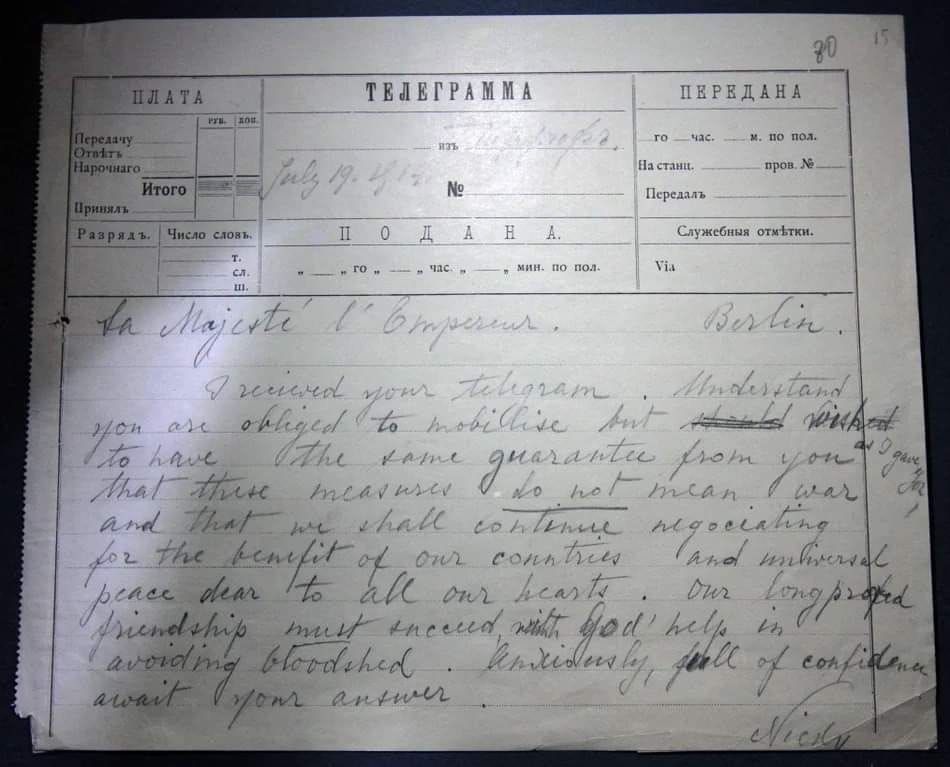 80 15
ПЛАТА
ТЕЛЕГРАММА
ПЕРЕДАНА
РУБ. КОП.
Передачу
Отвѣтъ
Нарочнаго
Итого
Принялъ
изъ Петергофъ.
July 19.
№
го час. м. по пол.
На станц. пров. №
Передалъ
Разрядъ. Число словъ.
т.
сл.
ш.
ПОДАНА.
„ „ го „ „ час. „ „ мин. по пол.
Служебныя отмѣтки.
Via
Sa Majesté l'Empereur. Berlin.
I recieved your telegram. Understand
you are obliged to mobilise but wish
to have the same guarantee from you as I gave
that these measures do not mean war
and that we shall continue negociating
for the benefit of our countries and universal
peace dear to all our hearts. Our longproved
friendship must succeed, with God' help in
avoiding bloodshed. Anxiously, full of confidence
await your answer.
Nicky